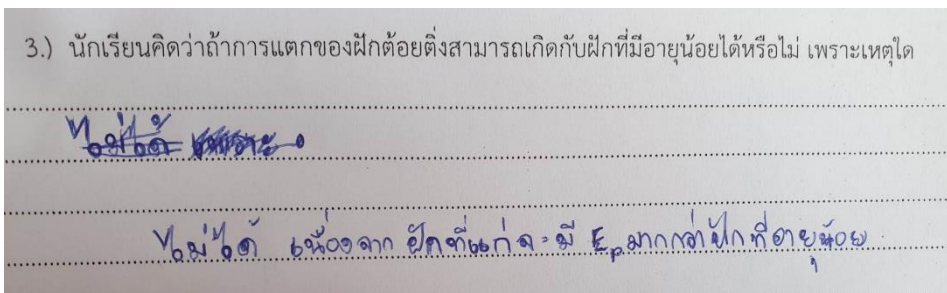 3.) นักเรียนคิดว่าถ้าการแตกของฝักต้อยติ่งสามารถเกิดกับฝักที่มีอายุน้อยได้หรือไม่ เพราะเหตุใด
ไม่ได้ เพราะ
ไม่ได้ เนื่องจาก ฝักที่แก่จะมี Ep มากกว่าฝักที่อายุน้อย